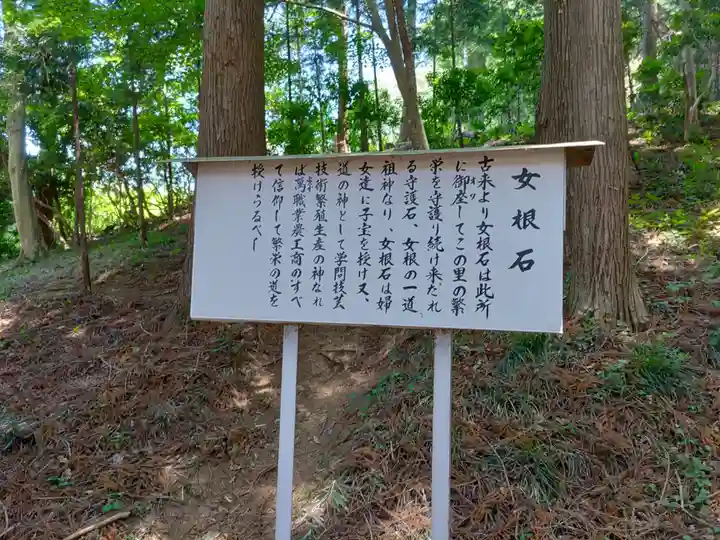 女根石
古来より女根石は此所
に御座してこの里の繁
栄を守護り続け来たれ
る守護石、女根の一道
祖神なり、女根石は婦
女達に子宝を授け又、
道の神として学問技芸
技術繁殖生産の神なれ
ば萬職業農工商のすべ
て信仰して繁栄の道を
授けうるべし